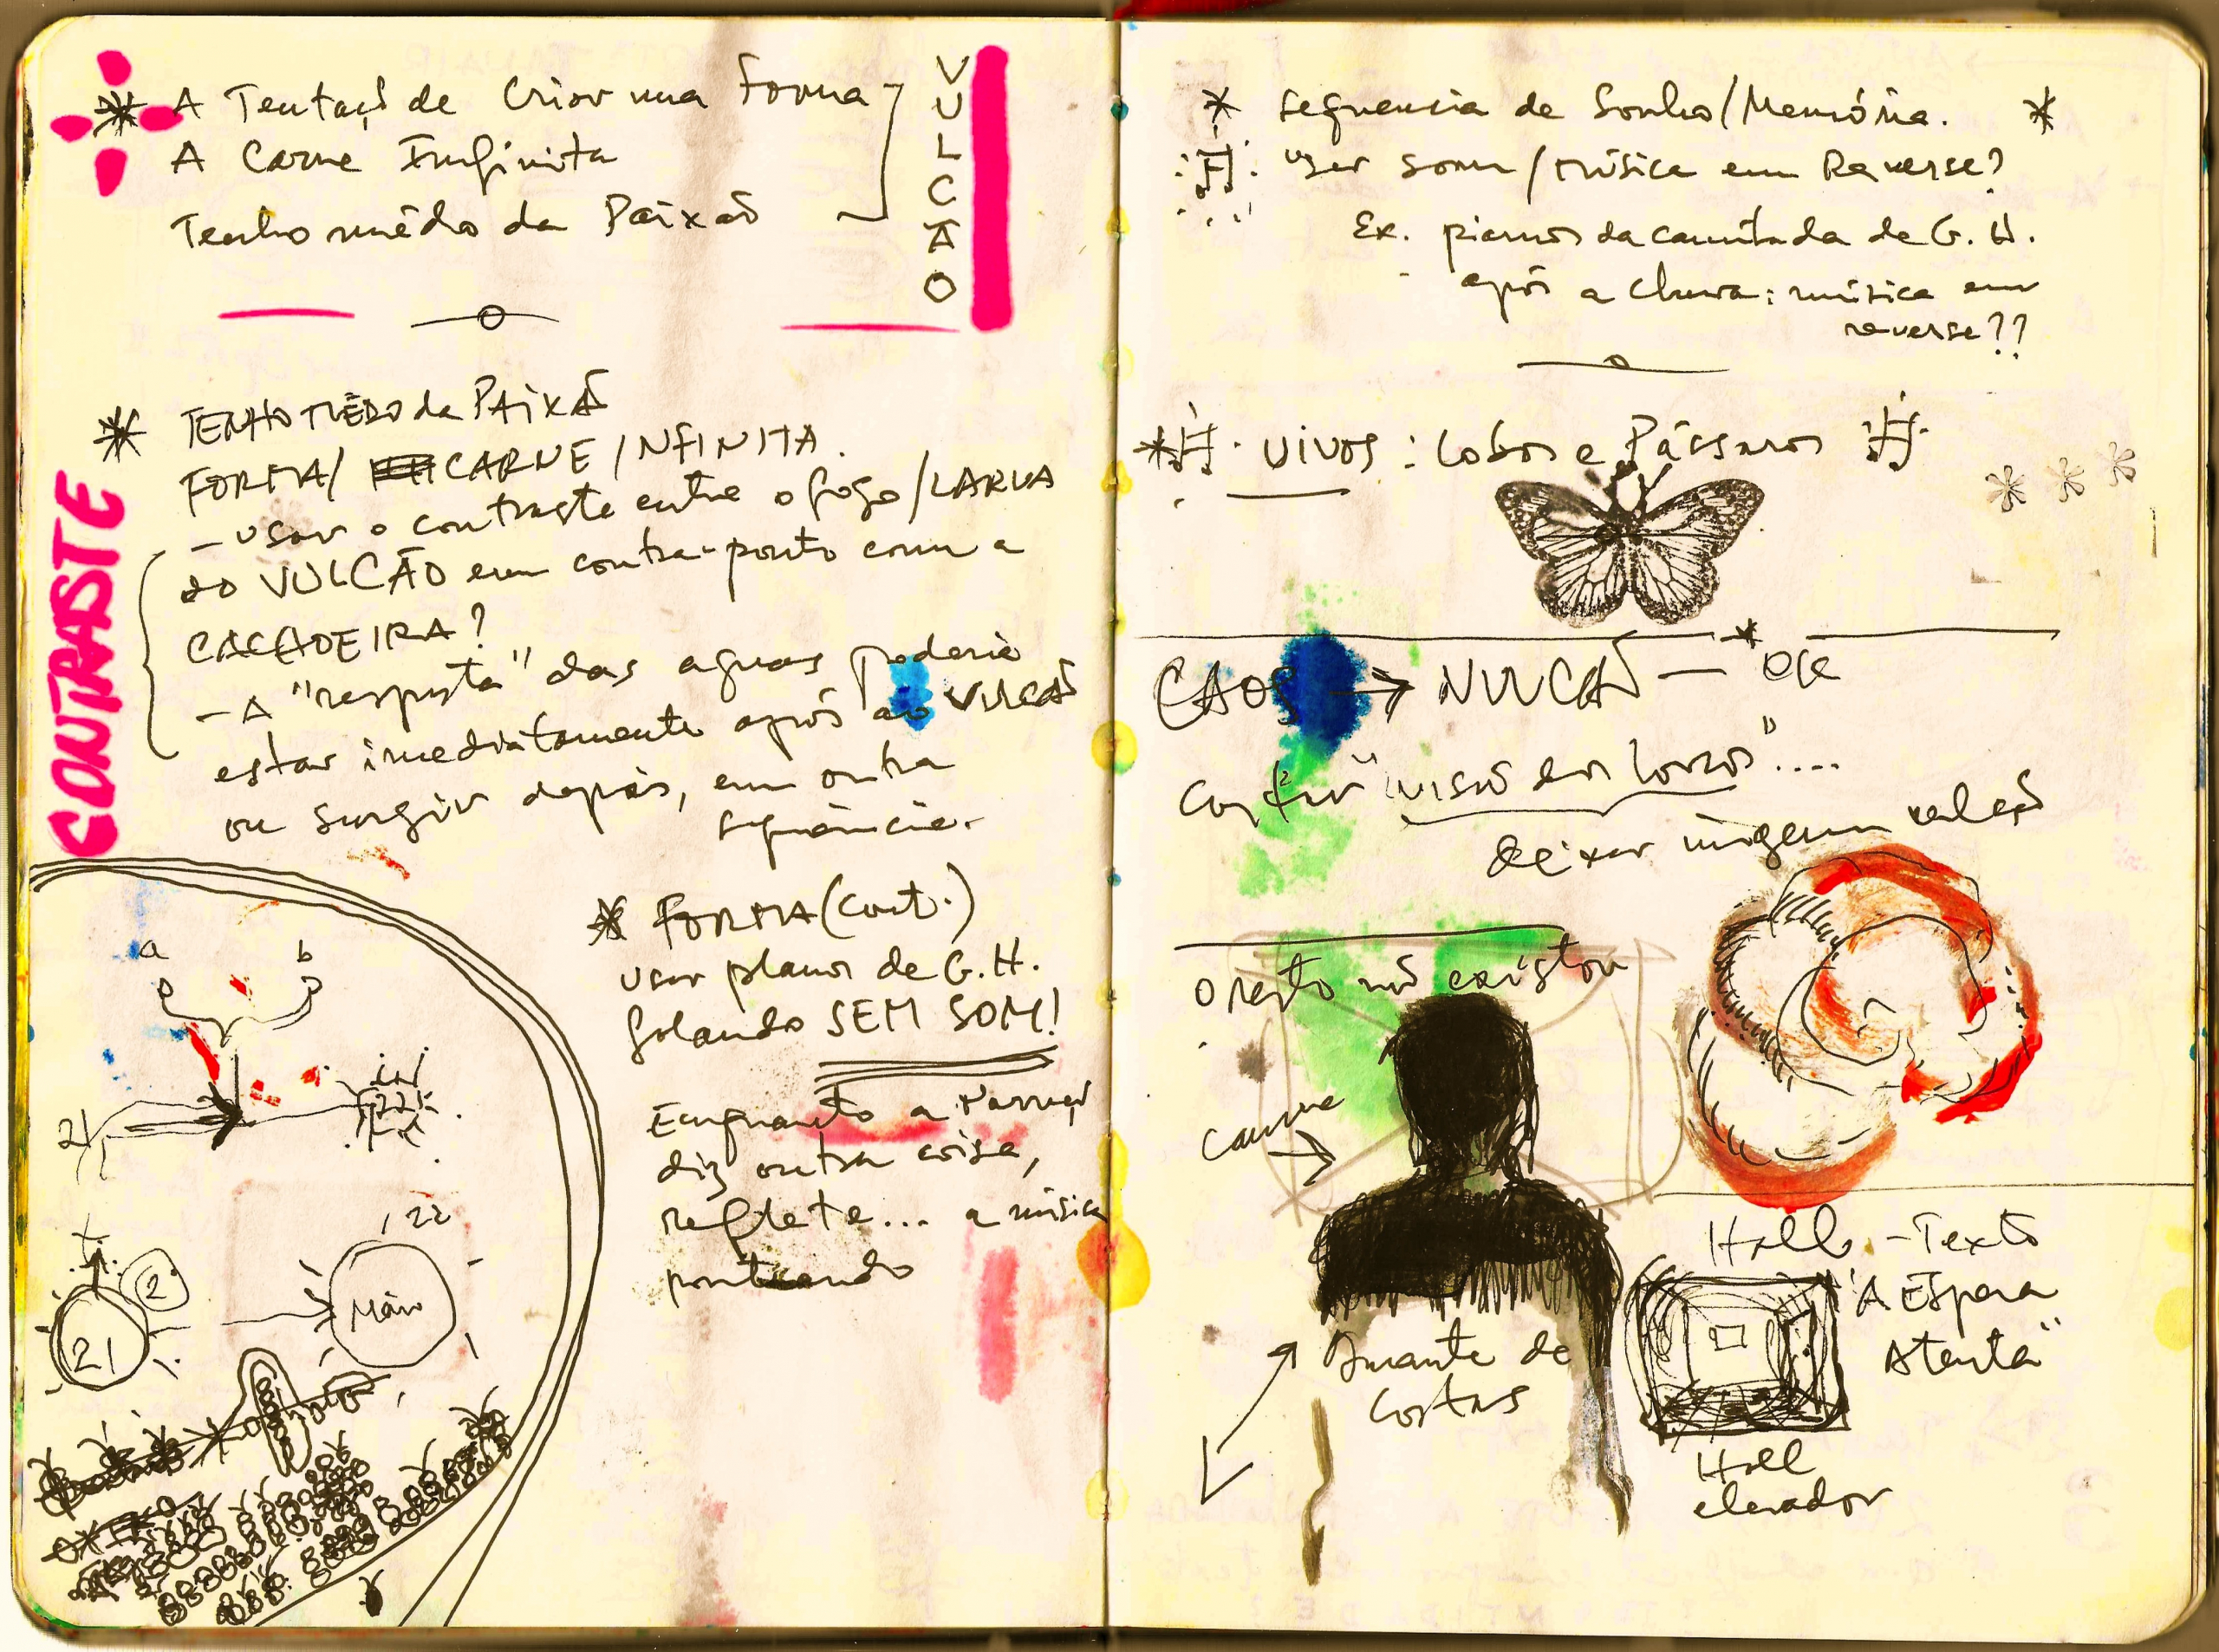 * A Tentaçã de Criar uma Forma
A Carne Infinita
Tenho médo da Paixão
VULCÃO
* TENHO MÊDO da PAIXÃ
FORMA/ CARNE INFINITA.
- Usar o contraste entre o fogo/LARVA
do VULCÃO em contra-ponto com a
CACHOEIRA?
- A "resposta" das aguas poderia
estar imediatamente após ao VULCÃ
ou surgir depois, em outra
sequência.
CONTRASTE
* FORMA (cont.)
usar planos de G.H.
falando SEM SOM!
Enquanto a narraçã
diz outra coisa,
reflete... a música
pontuando
a b
21 22
22
2
21 Main
* sequencia de Sonho/Memória. *
usar som/música em Reverse?
Ex. planos da caminhada de G.H.
após a chuva: música em
reverse??
* VIVOS: Lobos e Pássaros
CAOS → VULCÃ - *OK
"visão dos Lobos"....
deixar imagem
O resto não existiu
Came
Amante de
Costas
Hall - Texto
"A Espera
Atenta"
Hall
elevador